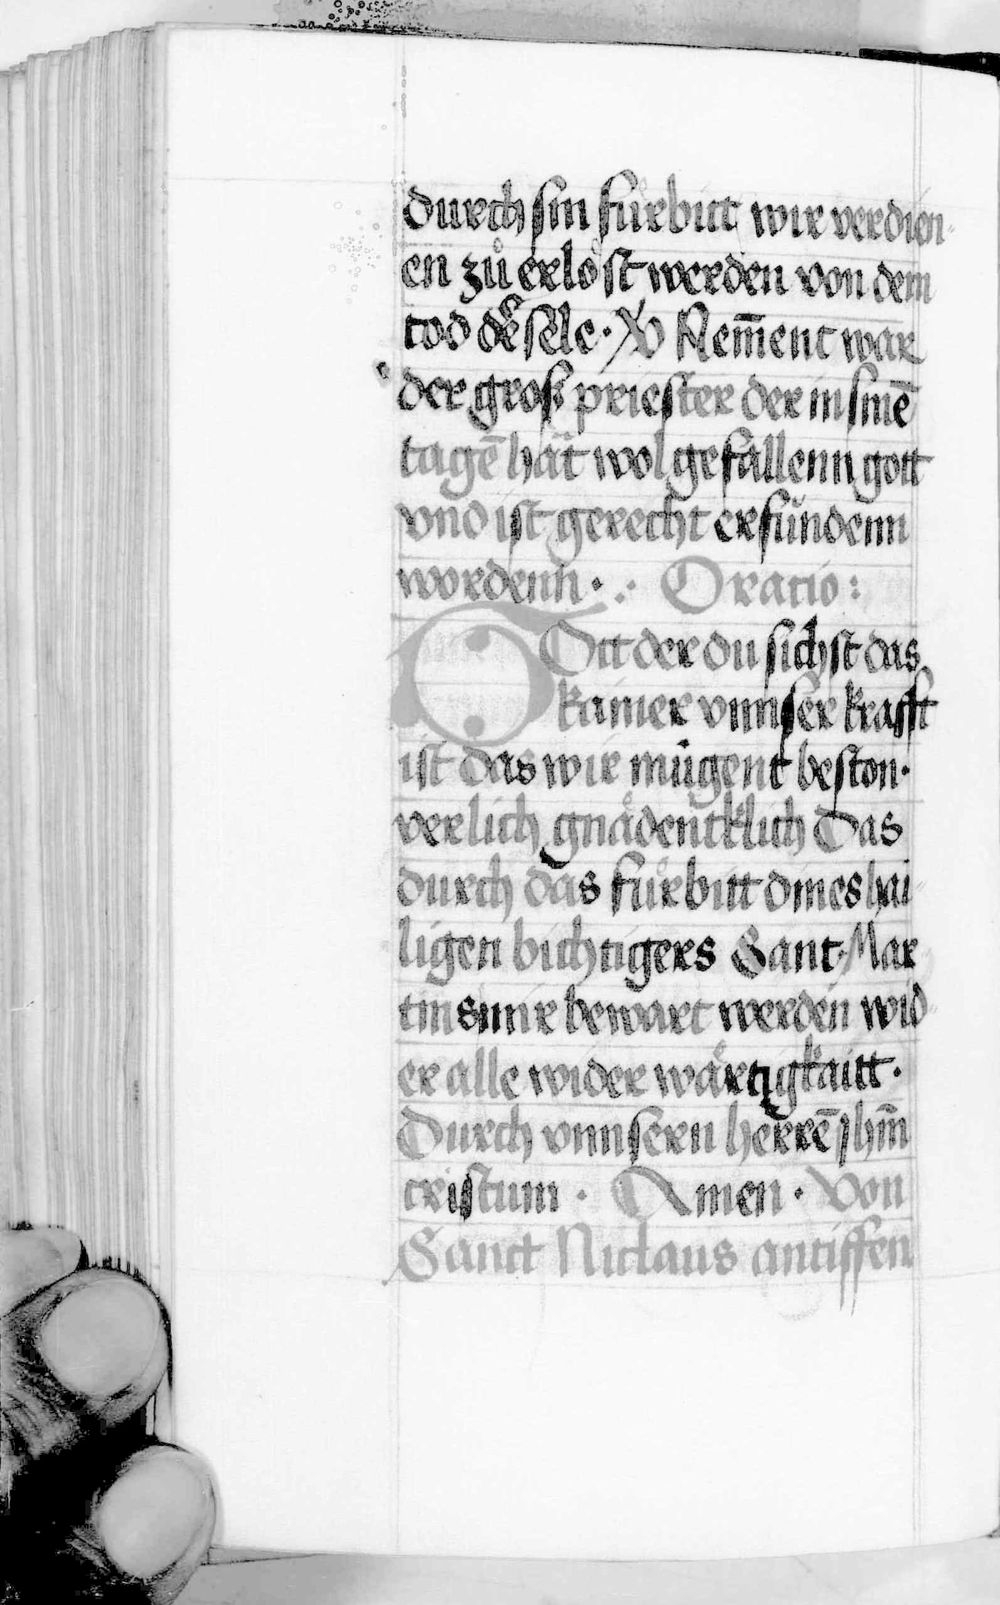 durch sin fürbitt wir verdien-
en zů erlöst werden von dem
tod dˢ sele · V Nem̄ent war
der gros priester der in sinē
tagē hät wolgefallenn gott
vnd ist gerecht erfundenn
wordenn · : Oratio :
GOtt der du sichst das
kainer vnnser krafft
ist das wir mügent beston ·
verlich gnädencklich Das
durch das fürbitt dines hai-
ligen bichtigers Sant Mar
tins mir bewart werden wid-
er alle wider wärtigkaitt ·
Durch vnnsern herrē Jhm̄
cristum · Amen · Von
Sanct Niclaus antiffen